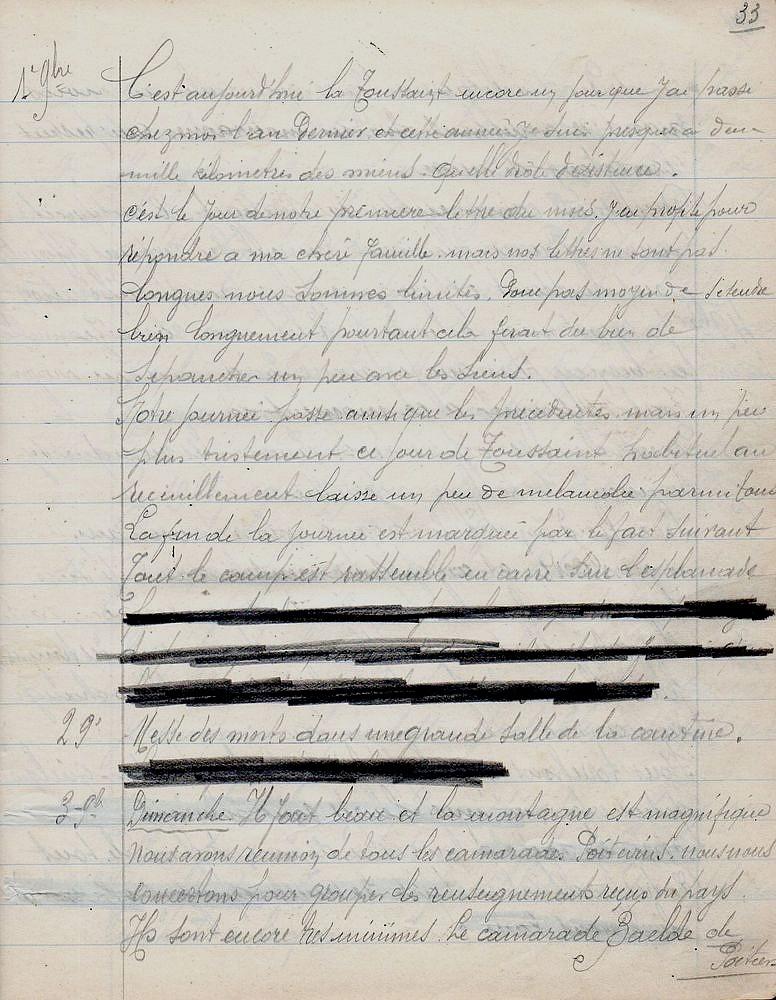 33
1er 9bre C'est aujourd'hui la Toussaint encore un jour que J'ai passé
chez moi l'an Dernier, et cette année Je suis presque a deux
mille kilometres des miens. Quelle drôle d'existence.
c'est le Jour de notre première lettre du mois. J'en profite pour
répondre a ma chère famille. mais nos lettres ne sont pas
longues nous sommes limités. Donc pas moyen de s'etendre
bien longuement pourtant cela ferait du bien de
s'epancher un peu avec les siens.
Notre journée passe ainsi que les précédentes mais un peu
plus tristement ce jour de Toussaint habituel au
recueillement laisse un peu de melancolie parmi tous
La fin de la journée est marquée par le fait suivant
Tout le camp est rassemblé en carré sur l'esplanade
2 9b Messe des morts dans une grande salle de la cantine.
3-9b Dimanche. Il fait beau et la montagne est magnifique
Nous avons réunion de tous les camarades Poitevins. nous nous
concertons pour grouper les renseignements reçus du pays.
Ils sont encore tres minimes. Le camarade Baelde de
Poitiers